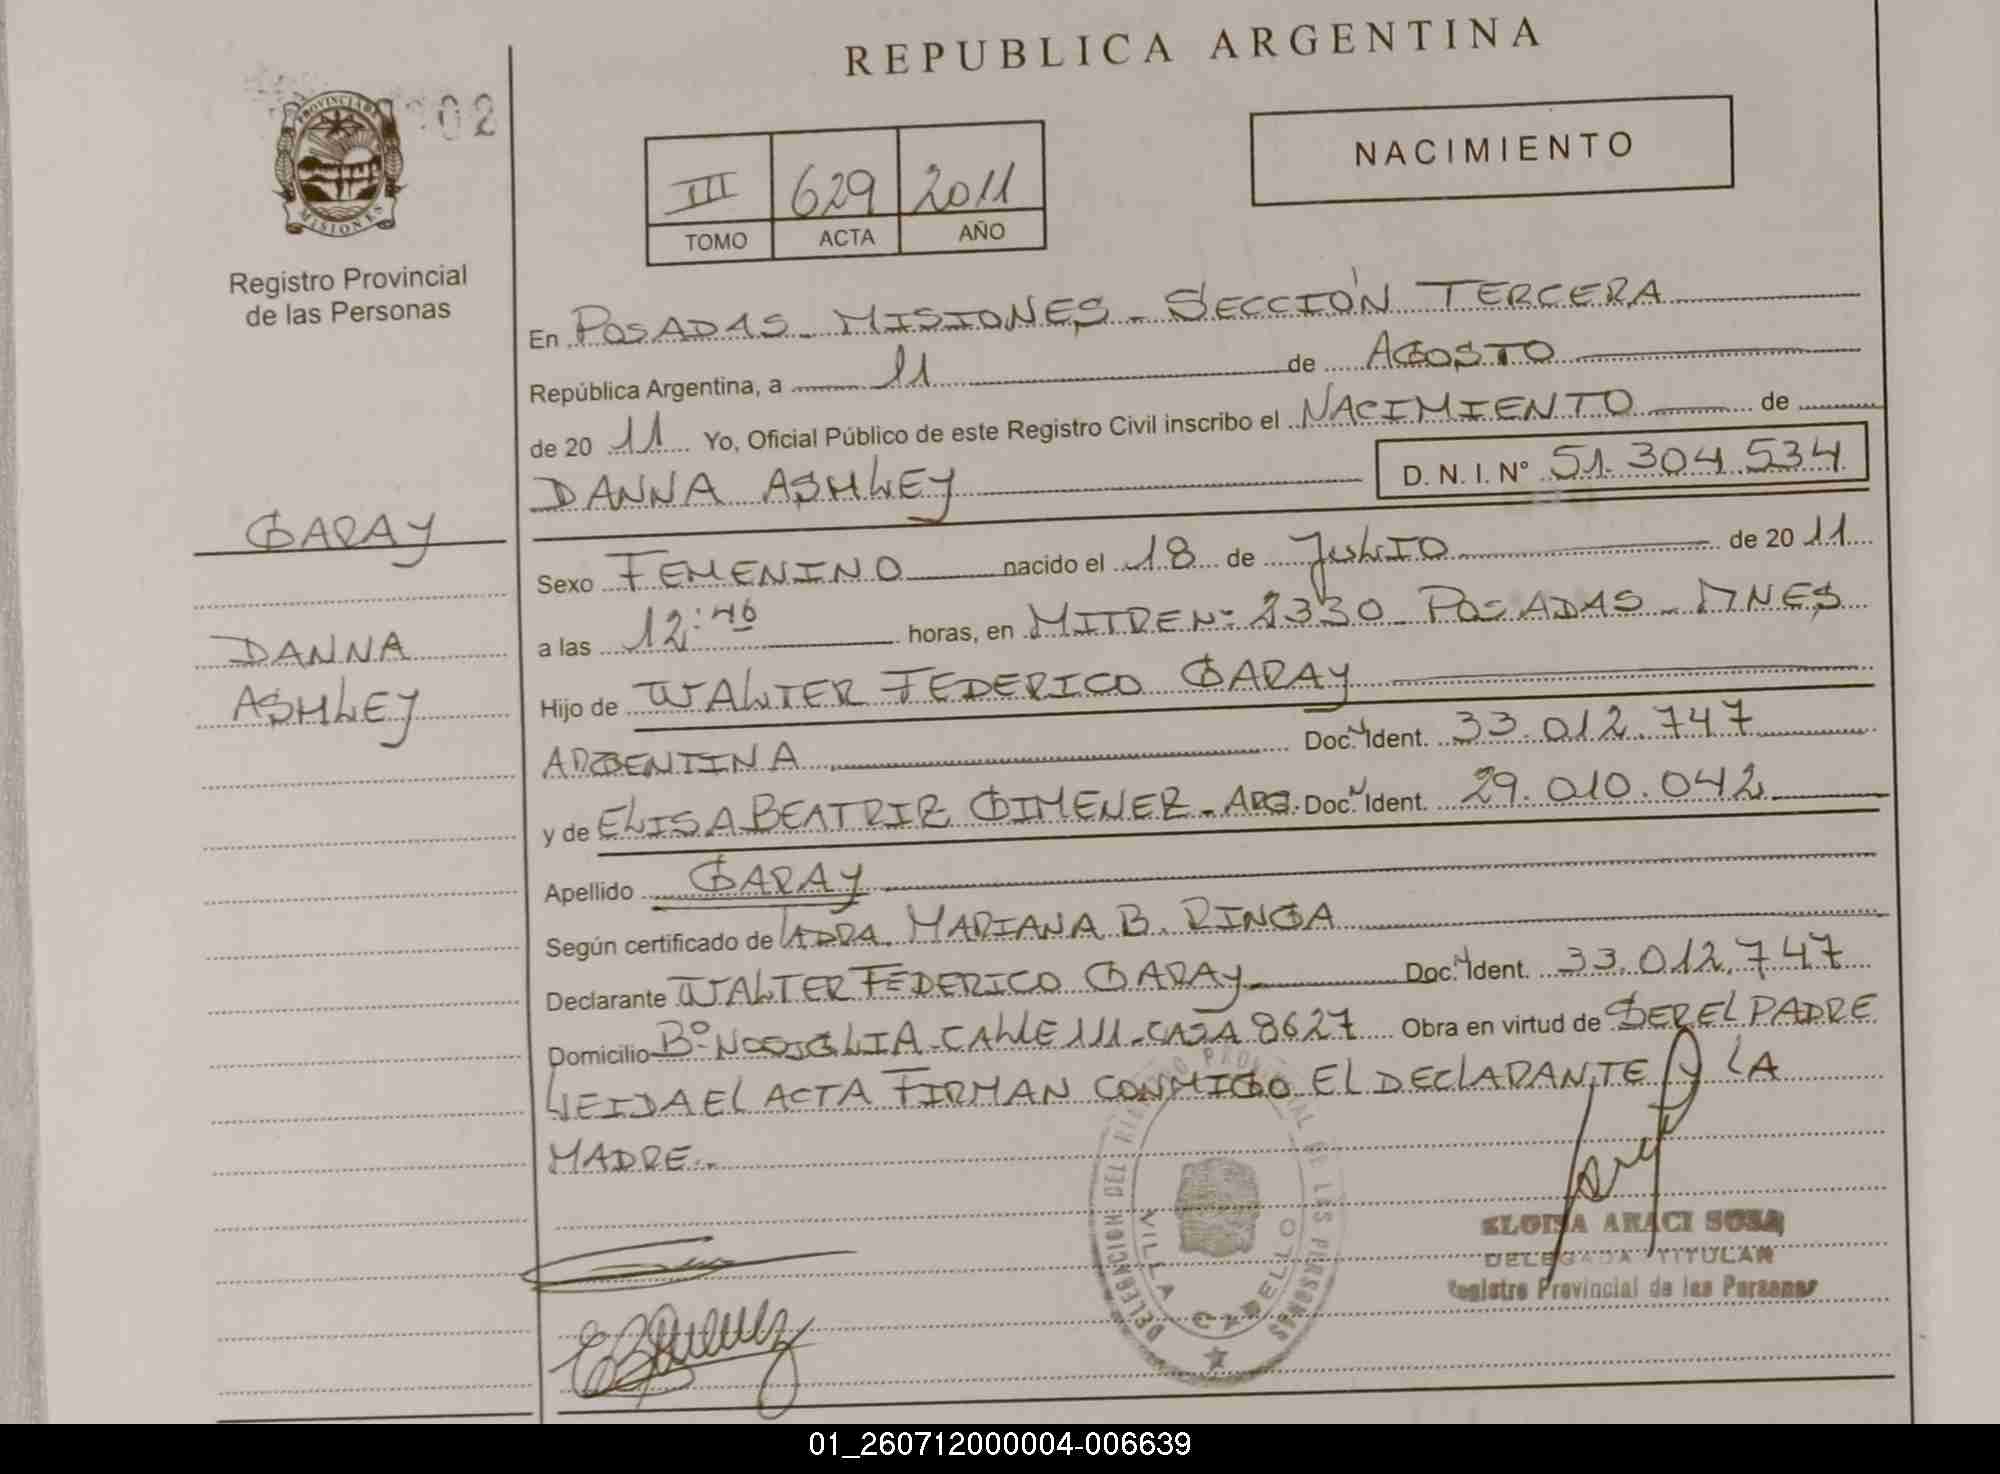 REPUBLICA ARGENTINA
PROVINCIA DE
MISIONES
02
Registro Provincial
de las Personas
NACIMIENTO
III 629 2011
TOMO ACTA AÑO
En POSADAS - MISIONES - SECCIÓN TERCERA
República Argentina, a 11 de AGOSTO
de 20 11 Yo, Oficial Público de este Registro Civil inscribo el NACIMIENTO de
DANNA ASHLEY D. N. I. Nº 51.304.534
GARAY
DANNA
ASHLEY
Sexo FEMENINO nacido el 18 de JULIO de 20 11
a las 12:40 horas, en MITRE Nº 2330 - POSADAS - MNES
Hijo de WALTER FEDERICO GARAY
ARGENTINA Doc. Ident. 33.012.747
y de ELISA BEATRIZ GIMENEZ - ARG. Doc. Ident. 29.010.042
Apellido GARAY
Según certificado de MARIANA B. RINGA
Declarante WALTER FEDERICO GARAY Doc. Ident. 33.012.747
Domicilio Bº NOSIGLIA - CALLE 111 - CASA 8627 Obra en virtud de SER EL PADRE
LEIDA EL ACTA FIRMAN CONMIGO EL DECLARANTE Y LA
MADRE.-
DELEGACION DEL REGISTRO PROVINCIAL DE LAS PERSONAS
VILLA CABELLO
ELOISA ARACI SOSA
DELEGADA TITULAR
Registro Provincial de las Personas
01_260712000004-006639